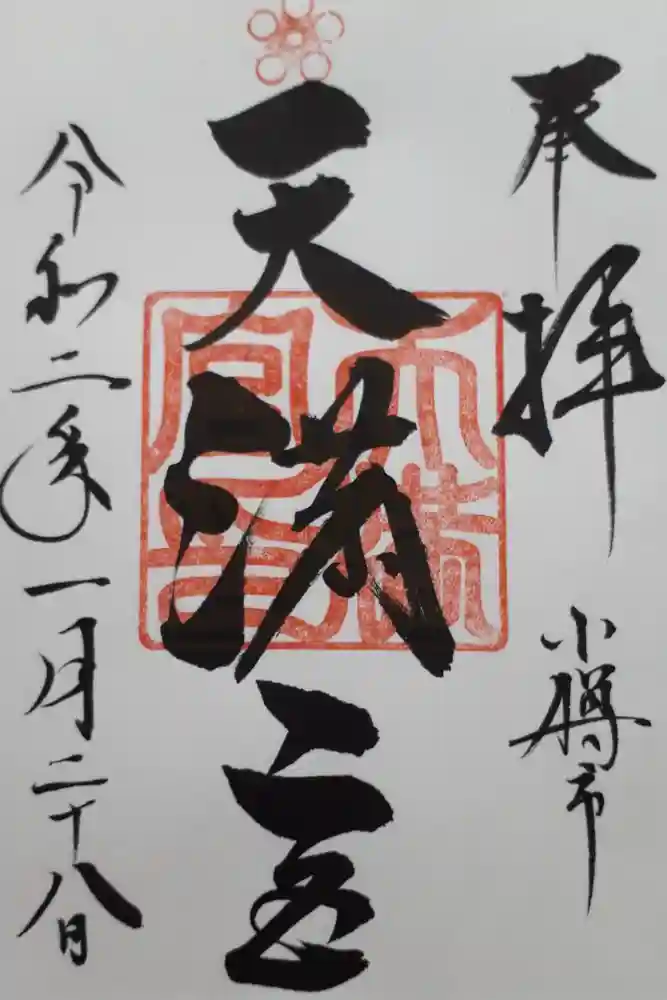 奉拝
小樽市
天満宮
天満宮音
令和二年一月二十八日